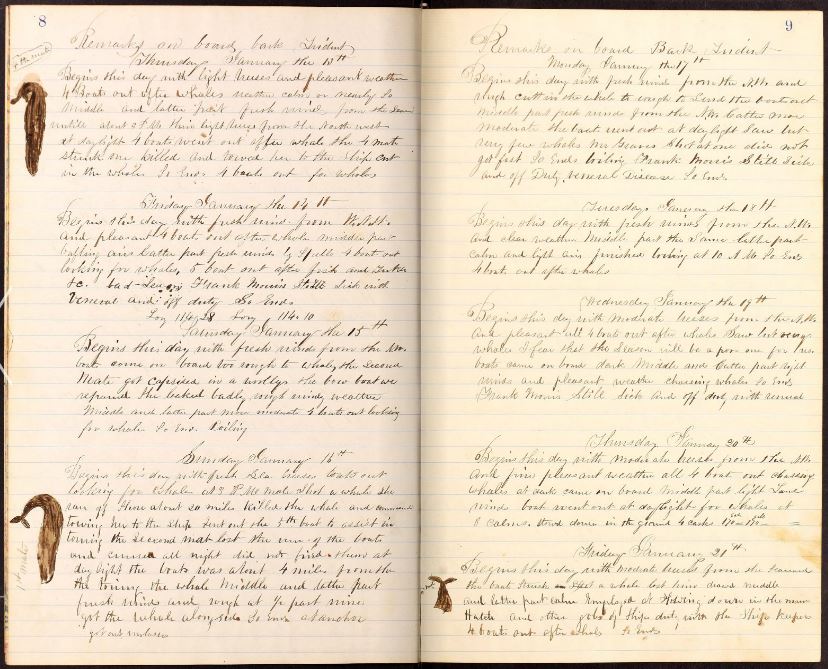 8
Remarks on board bark Trident
Thursday January the 13th
Begins this day with light breeses and pleasant weather
4 Boats out after whales weather calm or nearly so
Middle and latter part fresh wind from the
untill about 3 AM then light from the North west
at daylight 4 boats went out after whale the 4 mate
struck one killed and towed her to the ship cut
in the whale So Ends 4 boats out for whales
Friday January the 14th
Begins this day with fresh wind from
and pleasant 4 boats out after whale middle part
latter part fresh winds by spells 4 boat out
looking for whales, 5 boat out after fresh and
&c. bad Frank Morris Still Sick with
Veneral and off duty So Ends
Long 114.10
Saturday January the 15th
Begins this day with fresh winds from the NW
boats come on board too rough to whale, the second
Mate got capsized in a the bow boat we
repaired the badly rough windy weather
Middle and latter part more moderate 4 boats out looking
for whales So Ends Boiling
Sunday January 16th
Begins this day with fresh Sea breeses boats out
looking for whales at 3 P.M. Mate Shot a whale she
ran of shore about 20 miles killed the whale and commenced
towing her to the ship sent out the 5th boat to assist in
towing the second mat lost the run of the boats
and cruised all night did not find them at
day light the boats was about 4 miles from the
towing the whale Middle and latter part
fresh winds and rough at part
got the whale alongside So Ends
1st mate
9
Remarks on board Bark Trident
Monday January the 17th
Begins this day with fresh wind from the N.W. and
rough cutt in the whale to rough to Send the boats out
middle part fresh winds from the N.W. latter more
moderate the boats went out at daylight Saw but
very few whales Mr Shot at one did not
get fast So Ends boiling Frank Morris Still Sick
and off Duty, veneral Disease So Ends
Tuesday January the 18th
Begins this day with fresh winds from the N.W.
and clear weather Middle part the Same latter part
calm and light airs finished boiling at 10 A.M. So Ends
4 boats out after whales
Wednesday January the 19th
Begins this day with moderate breeses from the N.W.
and pleasant all 4 boat out after whales Saw but very
whales I fear that the Season will be a poor one for us
boats came on board dark Middle and latter part light
winds and pleasant weather chaseing whales So Ends
Frank Morris Still Sick and off duty with veneral
Thursday January 20th
Begins this day with moderate breese from the N.W.
and fine pleasant weather all 4 boat out chaseing
whales at dark came on board Middle part light Land
wind boat went out at daylight for whales at
8 calms. stowd down in the ground 4 casks
Friday January 21th
Begins this day with moderate breeses from the
the boat Struck a whale lost him drawd middle
and latter part calm Employed at Stowing down in the main
Hatch and other jobs of Ships duty, with the Ship keepers
4 boats out after whales So Ends